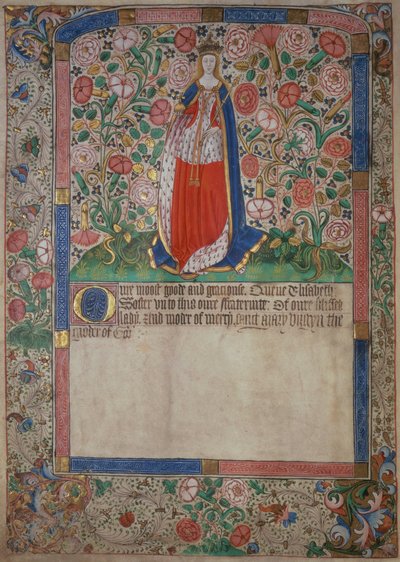 Oure moost goode and graciouse. Quene Elisabeth
Soster vnto this oure fraternite: Of oure blissed
lady. And moder of mercy, sanct mary virgyn the
moder of God